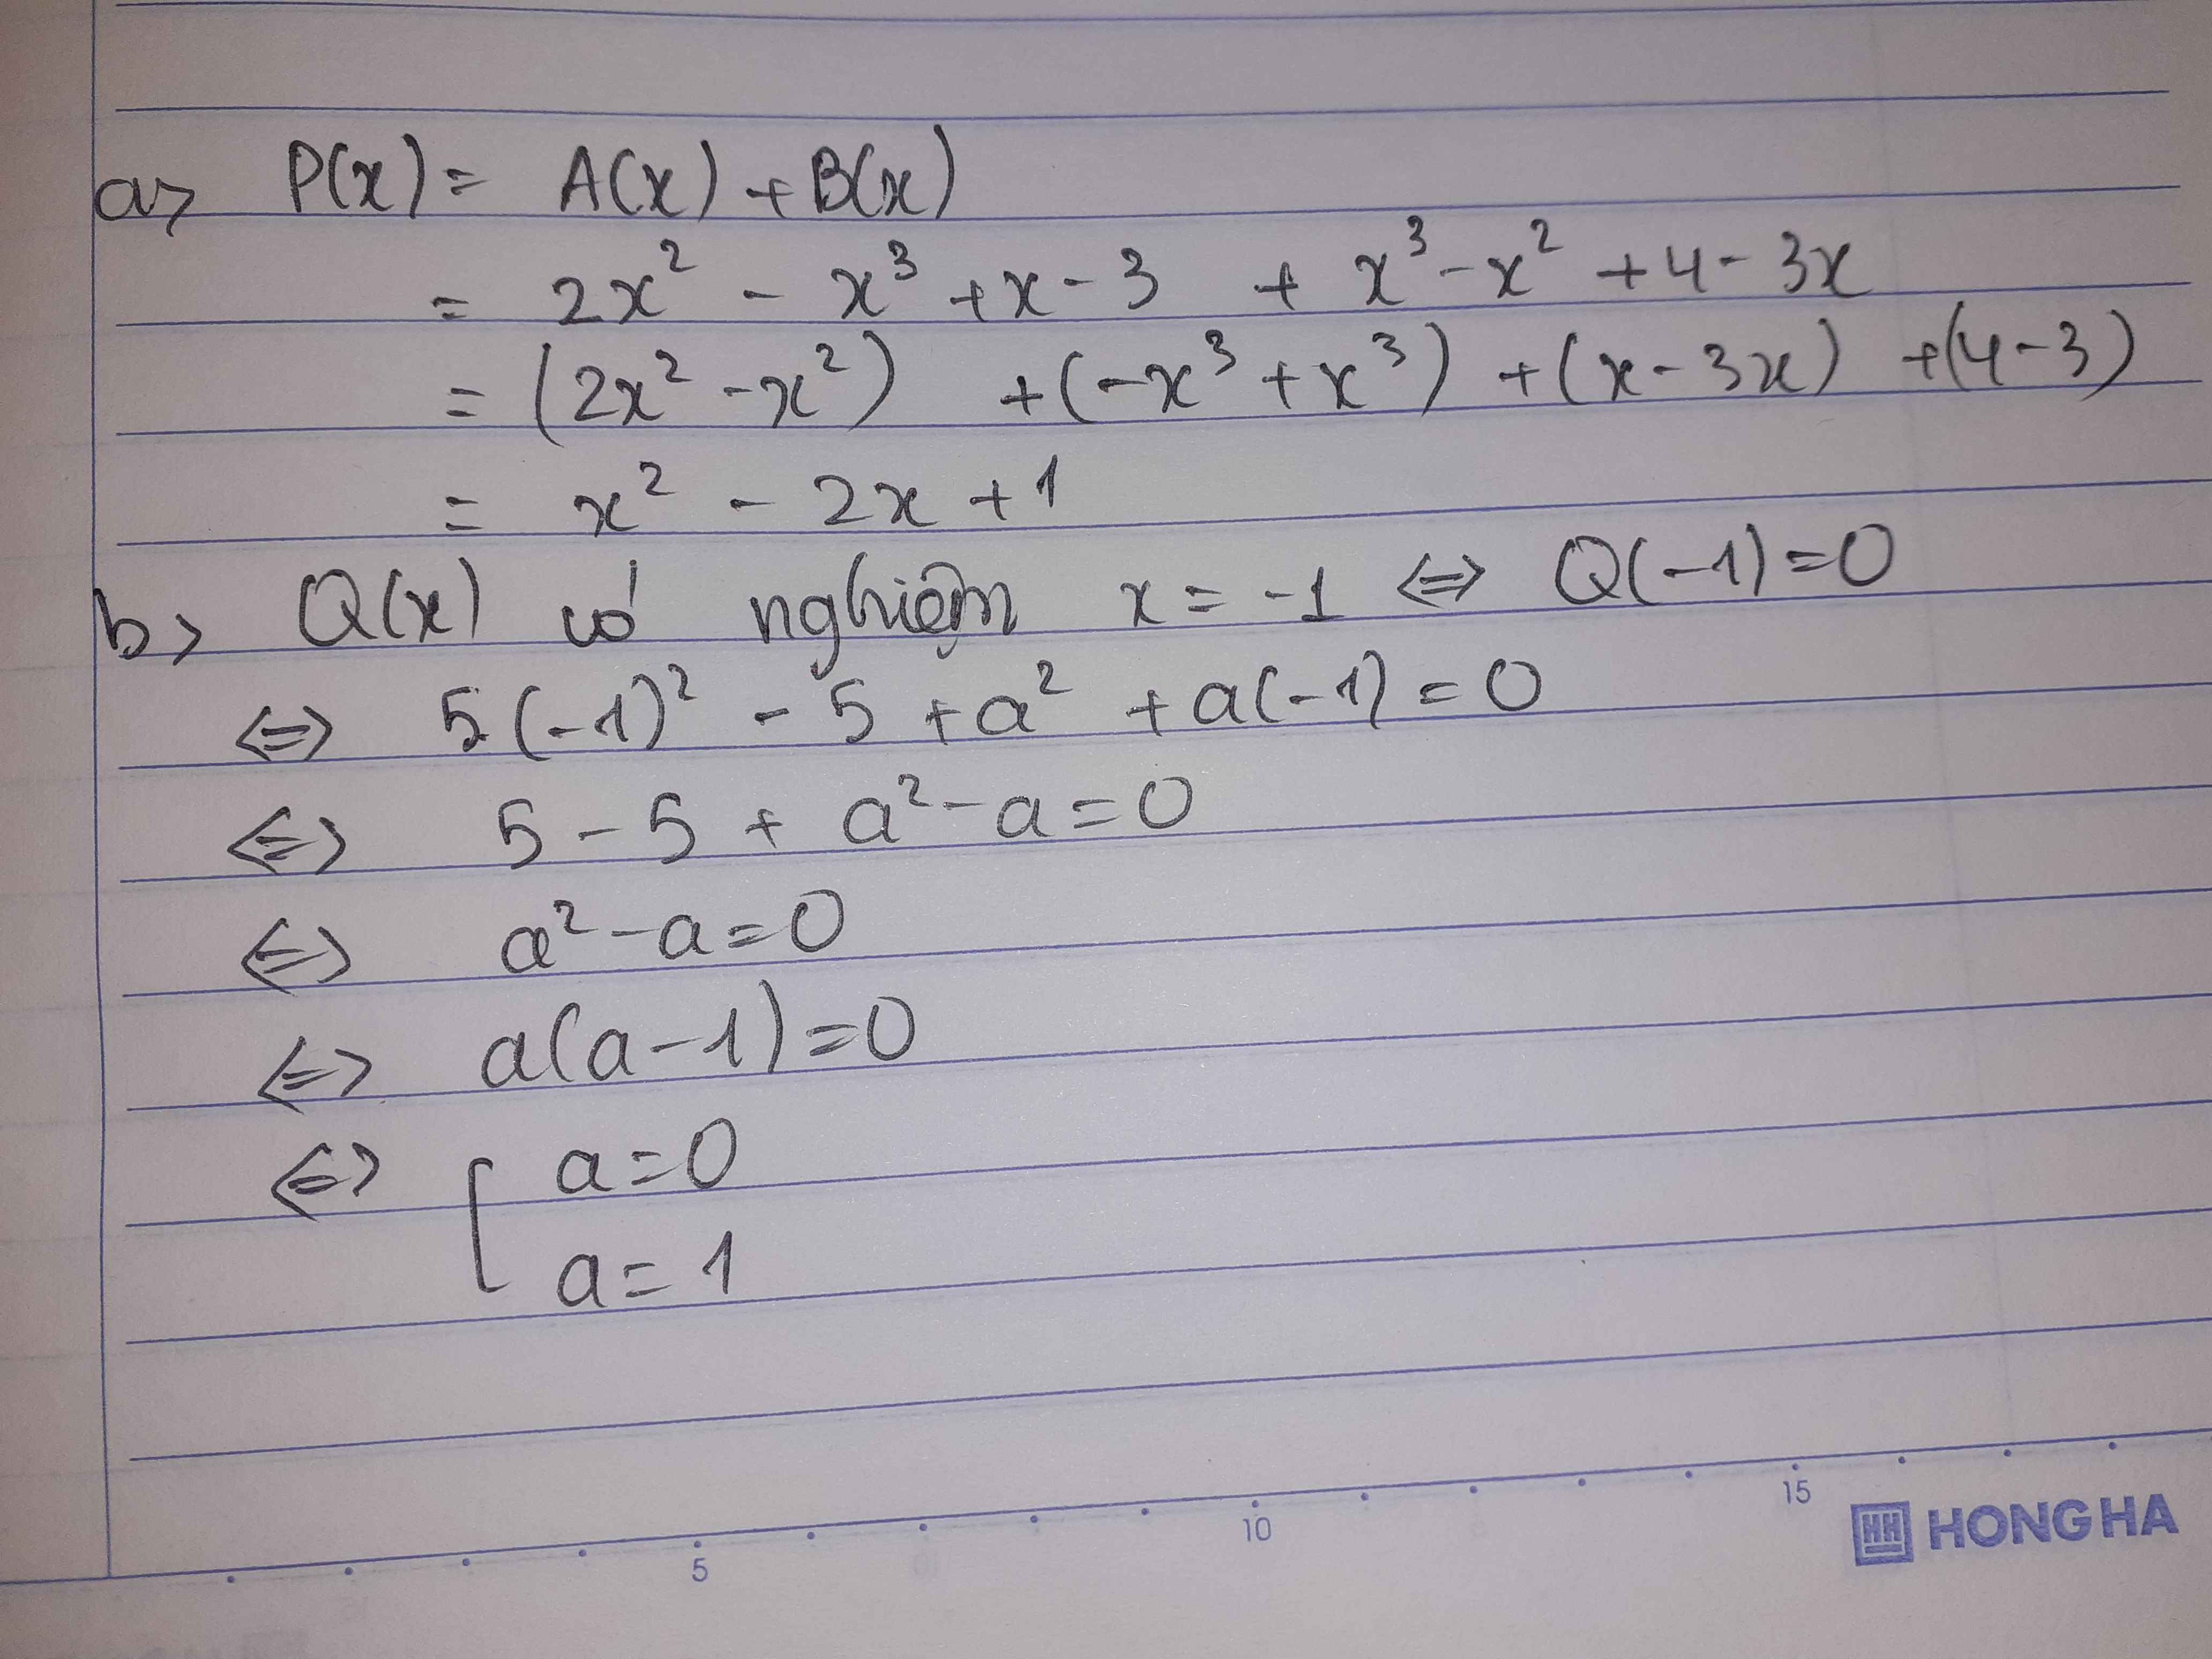 a> P(x) = A(x) + B(x)
= 2x² - x³ + x - 3 + x³ - x² + 4 - 3x
= (2x² - x²) + (-x³ + x³) + (x - 3x) + (4 - 3)
= x² - 2x + 1
b> Q(x) có nghiệm x = -1 <=> Q(-1) = 0
<=> 5(-1)² - 5 + a² + a(-1) = 0
<=> 5 - 5 + a² - a = 0
<=> a² - a = 0
<=> a(a - 1) = 0
<=> [ a = 0
a = 1
5 10 15
HH HONG HA